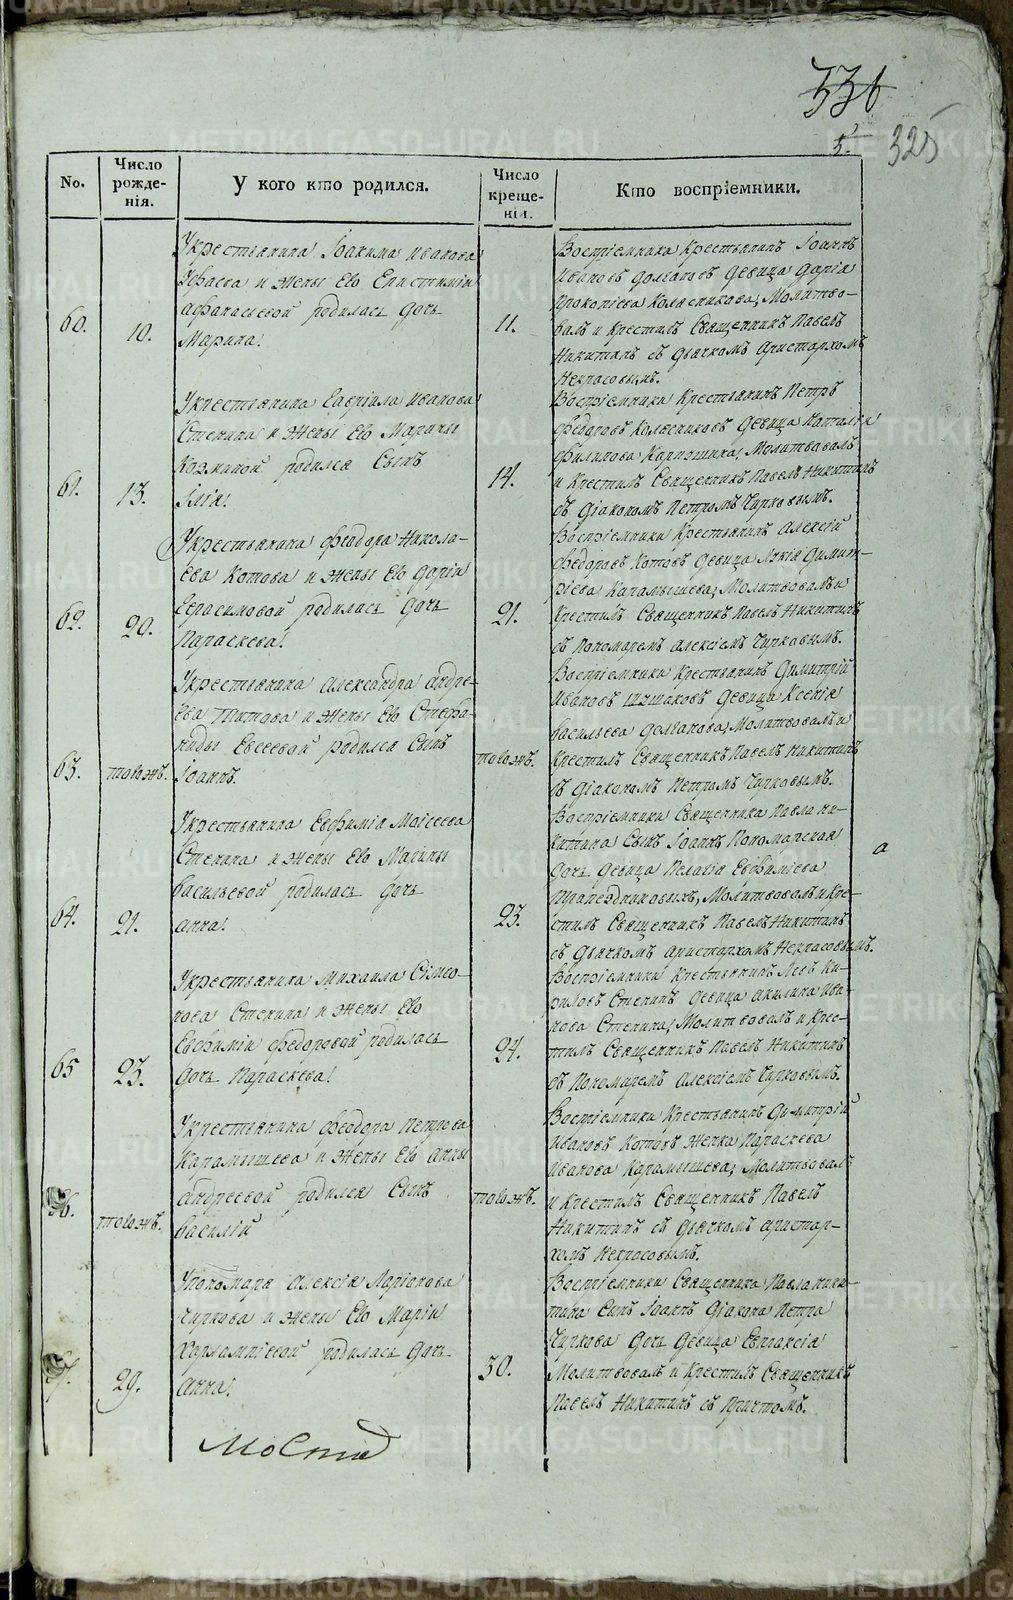 536
5.
325
No.
Число рожденія.
У кого кто родился.
Число крещенія.
Кто воспріемники.
60.
10.
У крестьянина Іоакима Иванова
и жены Его Епистиміи
Афанасьевой родилась дочь
Марина.
11.
Воспріемники Крестьянинъ Іоаннъ
Ивановъ Долгановъ Девица Дарія
Прокопіева Колясникова; Молитво-
валъ и Крестилъ Священникъ Павелъ
Никитинъ съ Дьячкомъ Аристархомъ
Некрасовымъ.
61.
13.
У крестьянина Гавріила Иванова
Стенина и жены Его Марины
Козминой родился Сынъ
Илія.
14.
Воспріемники Крестьянинъ Петръ
Федоровъ Колясниковъ Девица Наталья
Филипова; Молитвовалъ
и Крестилъ Священникъ Павелъ Никитинъ
съ Діакономъ Петромъ Чирковымъ.
62.
20.
У крестьянина Феодора Никола-
ева Котова и жены Его Даріи
Герасимовой родилась дочь
Параскева.
21.
Воспріемники Крестьянинъ Алексій
Федоровъ Котовъ Девица Лукія Димит-
ріева Карамышева; Молитвовалъ и
Крестилъ Священникъ Павелъ Никитинъ
съ Пономаремъ Алексіемъ Чирковымъ.
63.
тогожъ.
У крестьянина Александра Андре-
ева Титова и жены Его Стефа-
ниды Евсеевой родился Сынъ
Іоаннъ.
тогожъ.
Воспріемники Крестьянинъ Димитрій
Ивановъ Шишаковъ Девица Ксенія
Васильева Долганова; Молитвовалъ и
Крестилъ Священникъ Павелъ Никитинъ
съ Діакономъ Петромъ Чирковымъ.
64.
21.
У крестьянина Евфимія Моісеева
Стенина и жены Его Марины
Васильевой родилась дочь
Анна.
23.
Воспріемники Священника Павла Ни-
китина Сынъ Іоаннъ Пономарская
Дочь Девица Пелагія Евфиміева
Трапезниковыхъ, Молитвовалъ и Кре-
стилъ Священникъ Павелъ Никитинъ
съ Дьячкомъ Аристархомъ Некрасовымъ.
а
65
23.
У крестьянина Михаила Сімео-
нова Стенина и жены Его
Евфиміи Федоровой родилась
дочь Параскева.
24.
Воспріемники Крестьянинъ Левъ Ки-
риловъ Стенинъ Девица Акилина Ива-
нова Стенина; Молитвовалъ и Крес-
тилъ Священникъ Павелъ Никитинъ
съ Пономаремъ Алексіемъ Чирковымъ.
66.
тогожъ.
У крестьянина Феодора Петрова
Карамышева и жены Его Анны
Андреевой родился Сынъ
Василій
тогожъ.
Воспріемники Крестьянинъ Димитрій
Ивановъ Котовъ Женка Параскева
Иванова Карамышева; Молитвовалъ
и Крестилъ Священникъ Павелъ
Никитинъ съ Дьячкомъ Аристар-
хомъ Некрасовымъ.
29.
У пономаря Алексія Ларіонова
Чиркова и жены Его Маріи
Харлампіевой родилась дочь
Анна.
30.
Воспріемники Священника Павла Ники-
тина Сынъ Іоаннъ Діакона Петра
Чиркова Дочь Девица Евпраксія
Молитвовалъ и Крестилъ Священникъ
Павелъ Никитинъ съ Причтомъ.